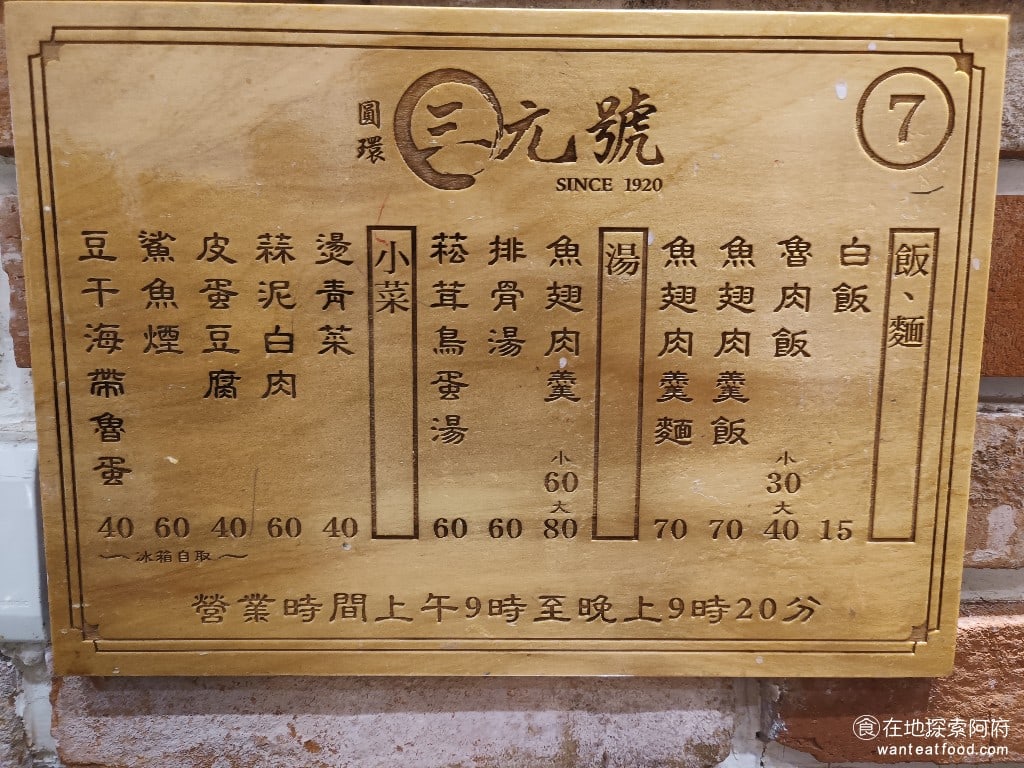 圓環 三元號
SINCE 1920
7
飯、麵
白飯 15
魯肉飯 小30 大40
魚翅肉羹飯 70
魚翅肉羹麵 70
湯
魚翅肉羹 小60 大80
排骨湯 60
菘茸鳥蛋湯 60
小菜
燙青菜 40
蒜泥白肉 60
皮蛋豆腐 40
鯊魚煙 60
豆干海帶魯蛋 40
冰箱自取
營業時間上午9時至晚上9時20分
食在地探索阿府
wanteatfood.com